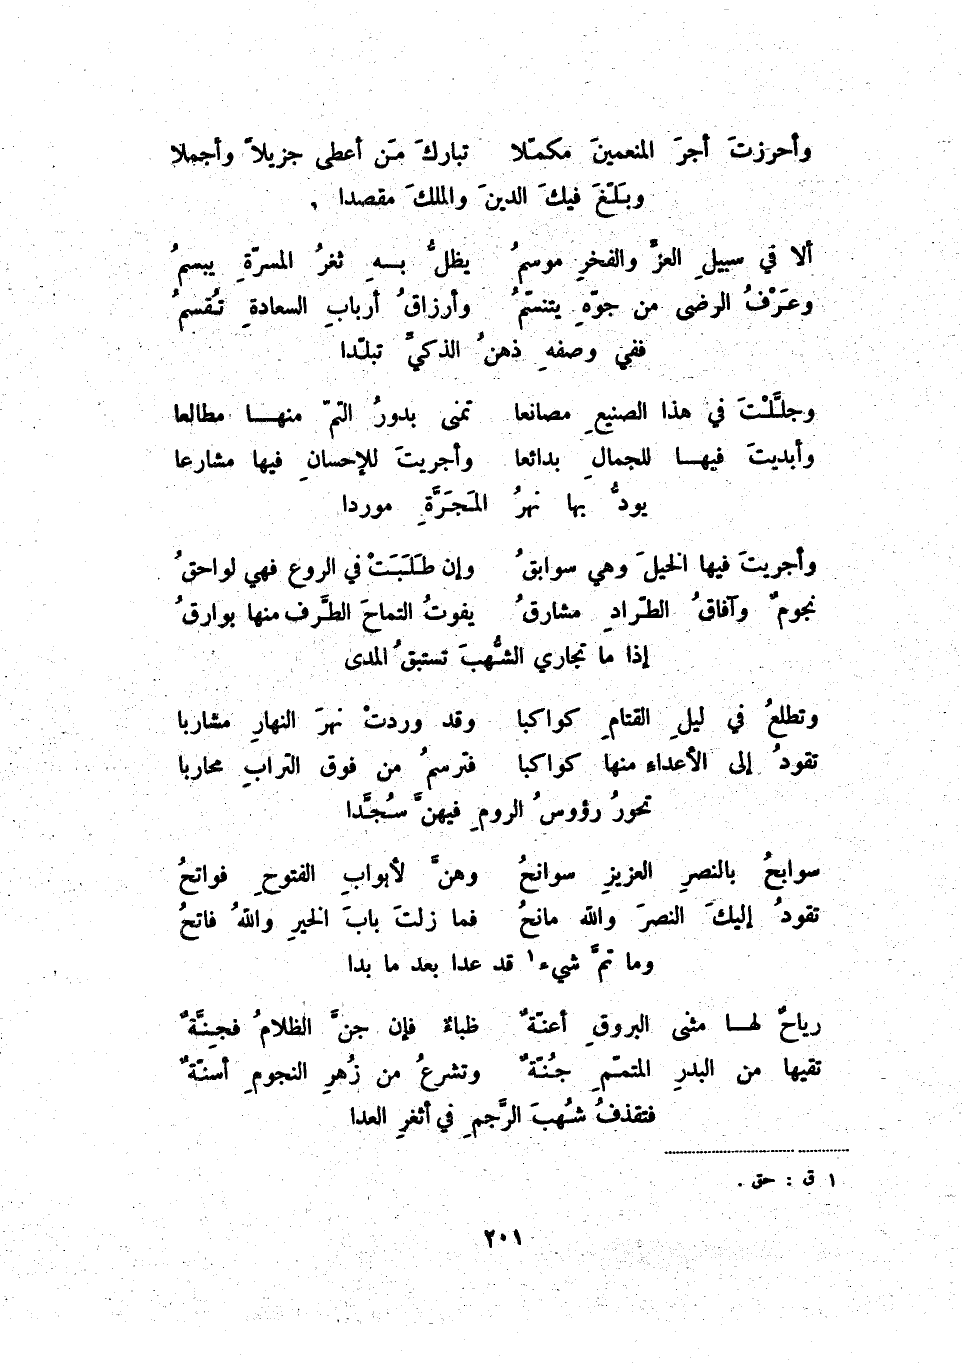 وأحرزتَ أجرَ المنعمينَ مكمّلا تباركَ مَن أعطى جزيلاً وأجملا
وبَلّغَ فيكَ الدينَ والملكَ مقصدا ,
ألا في سبيلِ العزِّ والفخرِ موسمُ يظلُّ بــهِ ثغرُ المسرّةِ يبسمُ
وعَرْفُ الرضى من جوّهِ يتنسّمُ وأرزاقُ أربابِ السعادةِ تُقسمُ
ففي وصفهِ ذهنُ الذكيِّ تبلّدا
وجلَّلْتَ في هذا الصنيعِ مصانعا تمنى بدورُ التّمّ منهــا مطالعا
وأبديتَ فيهــا للجمالِ بدائعا وأجريتَ للإحسانِ فيها مشارعا
يودُّ بها نهرُ المَجَرَّةِ موردا
وأجريتَ فيها الخيلَ وهي سوابقُ وإن طَلَبَتْ في الروعِ فهي لواحقُ
نجومٌ وآفاقُ الطّرادِ مشارقُ يفوتُ التماحَ الطَّرف منها بوارقُ
إذا ما تجاري الشُّهبَ تستبقُ المدى
وتطلعُ في ليلِ القتامِ كواكبا وقد وردتْ نهرَ النهارِ مشاربا
تقودُ إلى الأعداء منها كواكبا فترسمُ من فوق الترابِ محاربا
تحورُ رؤوسُ الرومِ فيهنَّ سُجَّدا
سوابحُ بالنصرِ العزيزِ سوانحُ وهنَّ لأبوابِ الفتوحِ فواتحُ
تقودُ إليكَ النصرَ والله مانحُ فما زلتَ بابَ الخيرِ واللهُ فاتحُ
وما تمَّ شيء١ قد عدا بعد ما بدا
رياحٌ لهــا مثنى البروقِ أعنّةٌ ظباءٌ فإن جنَّ الظلامُ فجِنَّةٌ
تقيها من البدرِ المتمّمِ جُنّةٌ وتشرعُ من زُهرِ النجومِ أسنّةٌ
فتقذفُ شُهبَ الرَّجمِ في أثغرِ العدا
١ ق : حق .
٢٠١